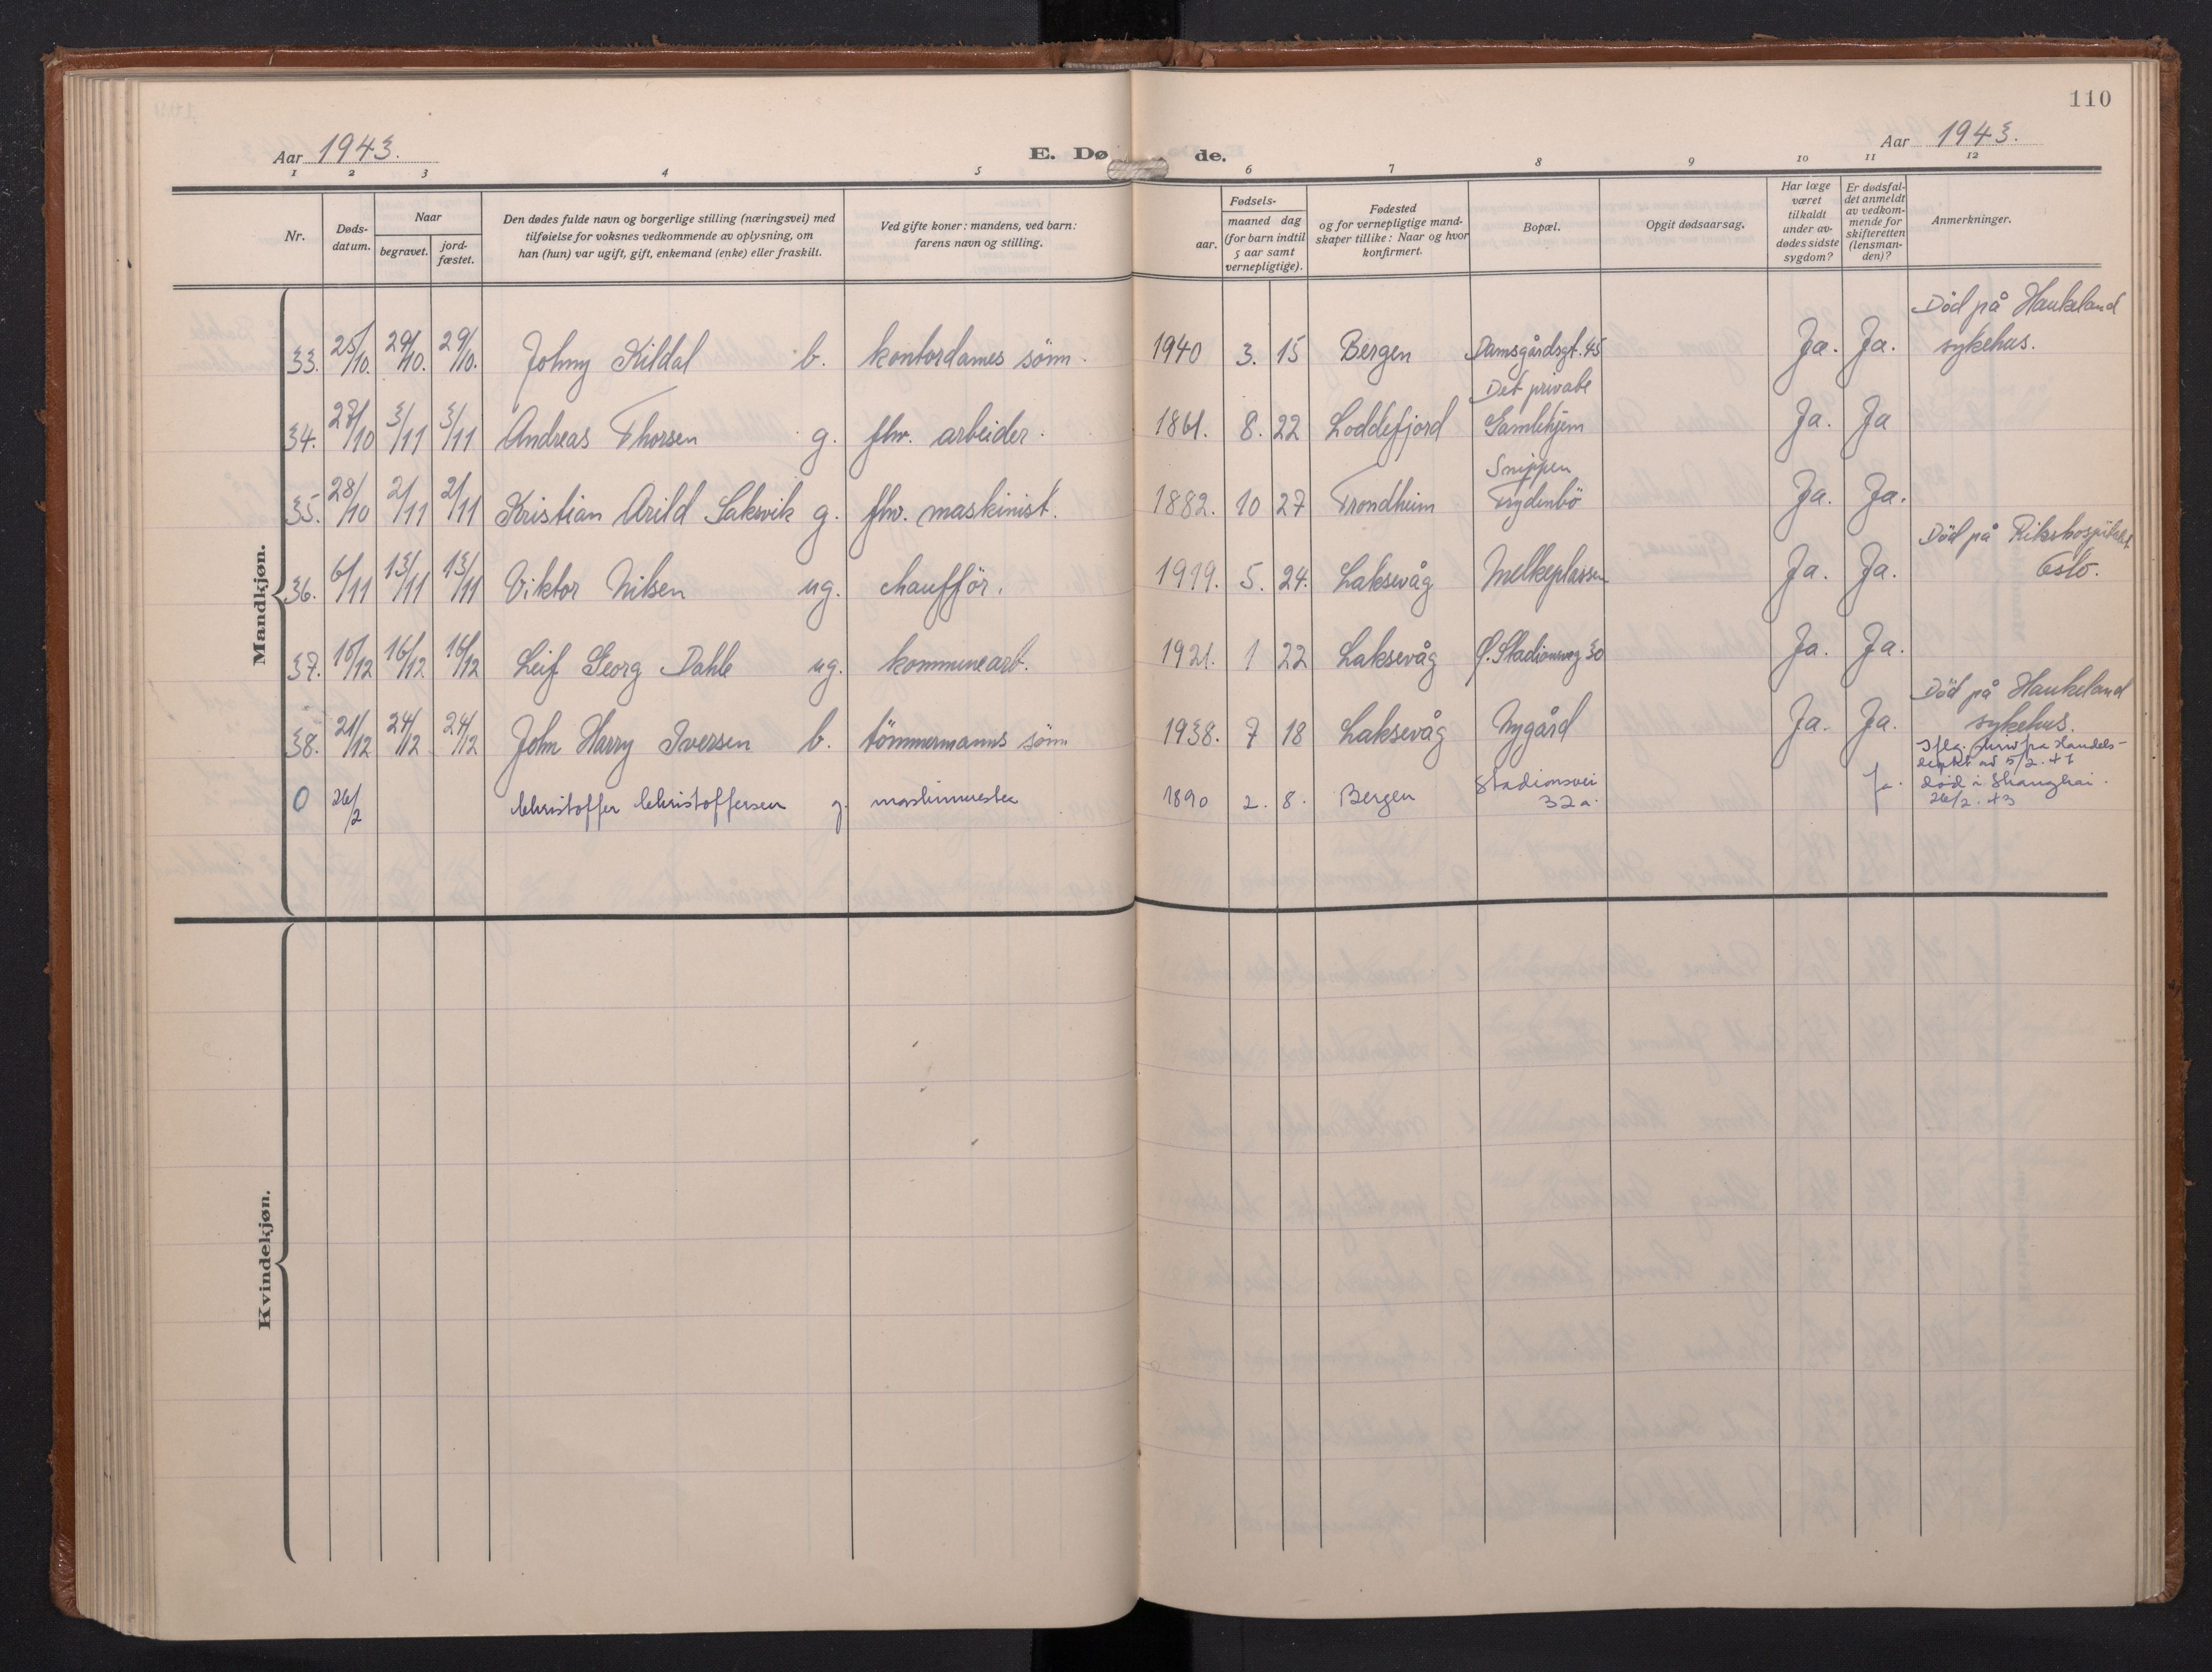 110
Aar 1943.
E. Døde.
Aar 1943.
1 2 3 4 5 6 7 8 9 10 11 12
Nr.
Døds-
datum.
Naar
begravet.
jord-
fæstet.
Den dødes fulde navn og borgerlige stilling (næringsvei) med
tilføielse for voksnes vedkommende av oplysning, om
han (hun) var ugift, gift, enkemand (enke) eller fraskilt.
Ved gifte koner: mandens, ved barn:
farens navn og stilling.
Fødsels-
aar.
maaned dag
(for barn indtil
5 aar samt
vernepligtige).
Fødested
og for vernepligtige mand-
skaper tillike: Naar og hvor
konfirmert.
Bopæl.
Opgit dødsaarsag.
Har læge
været
tilkaldt
under av-
dødes sidste
sygdom?
Er dødsfal-
det anmeldt
av vedkom-
mende for
skifteretten
(lensman-
den)?
Anmerkninger.
Mandkjøn.
33. 25/10. 29/10. 29/10. Johny Kildal b. kontordames sönn. 1940 3. 15 Bergen Damsgårdsgt. 45 Ja. Ja. Död på Haukeland
sykehus.
34. 27/10 3/11 3/11 Andreas Thorsen g. fhv. arbeider. 1861. 8. 22 Loddefjord Det private
Gamlehjem Ja. Ja
35. 28/10 2/11 2/11 Kristian Arild Saksvik g. fhv. maskinist. 1882. 10 27 Trondheim Snippen
Frydenbö Ja. Ja.
36. 6/11 13/11 13/11 Viktor Nilsen ug. chaufför. 1919. 5. 24. Laksevåg Melkeplassen Ja. Ja. Död på Rikshospitalet
Oslo.
37. 16/12 16/12 Leif Georg Dahle ug. kommunearb. 1921. 1 22 Laksevåg Ø. Stadionveg 30 Ja. Ja.
38. 21/12 24/12 24/12 John Harry Iversen b. tömmermanns sönn 1938. 7 18 Laksevåg Nygård Ja. Ja. Död på Haukeland
sykehus.
0 26/2 Christoffer Christoffersen g. maskinmester 1890 2. 8. Bergen Stadionsvei
32a. Ja. Iflg. skriv fra Handels-
dept av 5/2. 47
död i Shanghai.
26/2. 43
Kvindekjøn.